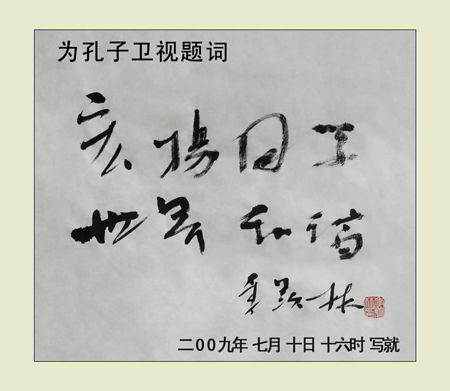 为孔子卫视题词
宏揚国学
世界和谐
季羡林
二00九年 七月 十日 十六时 写就